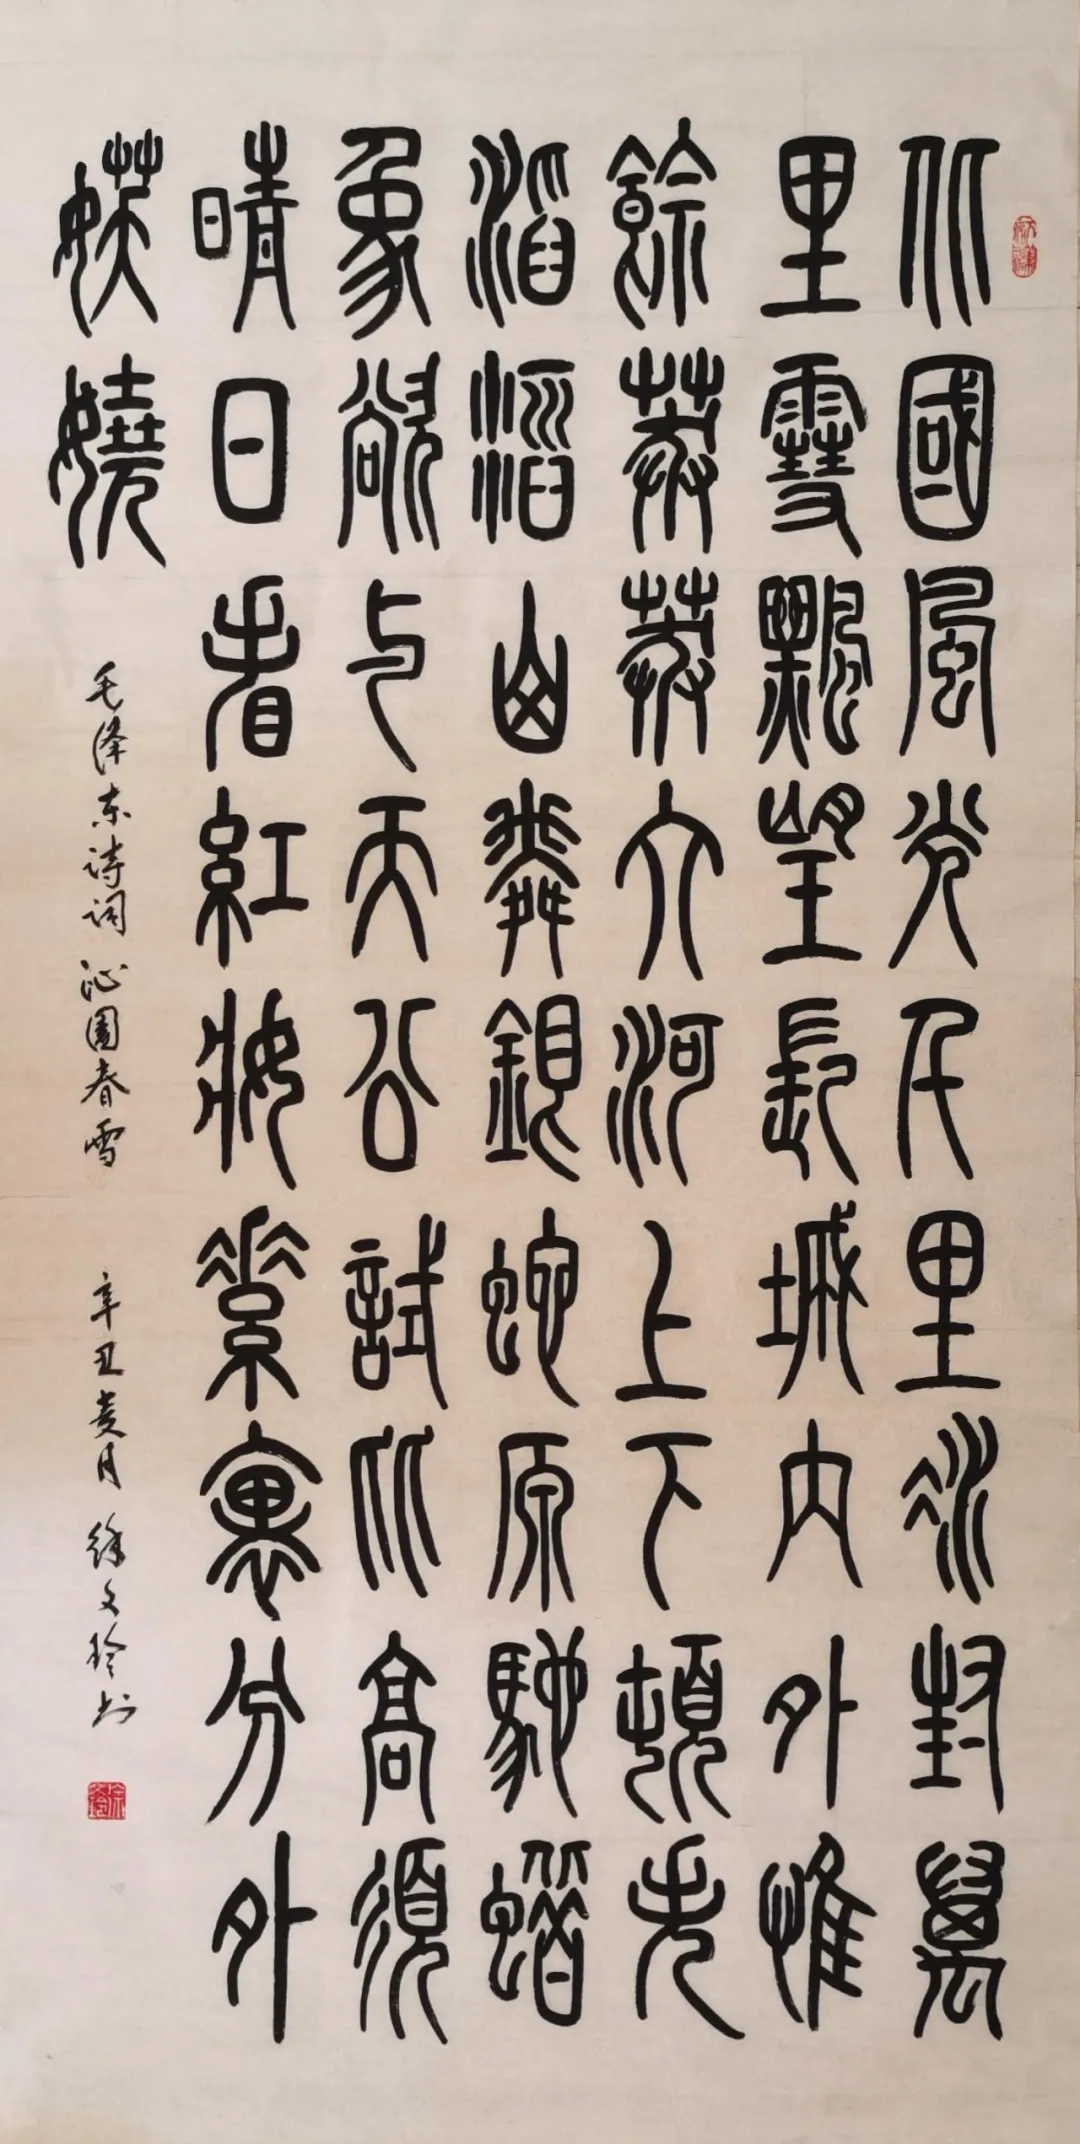 北國風光千里冰封萬
里雪飄望長城内外惟
餘莽莽大河上下頓失
滔滔山舞銀蛇原馳蠟
象欲与天公試比高須
晴日看紅妝素裹分外
妖嬈
毛泽东诗词 沁園春雪 辛丑麦月 徐文玲书